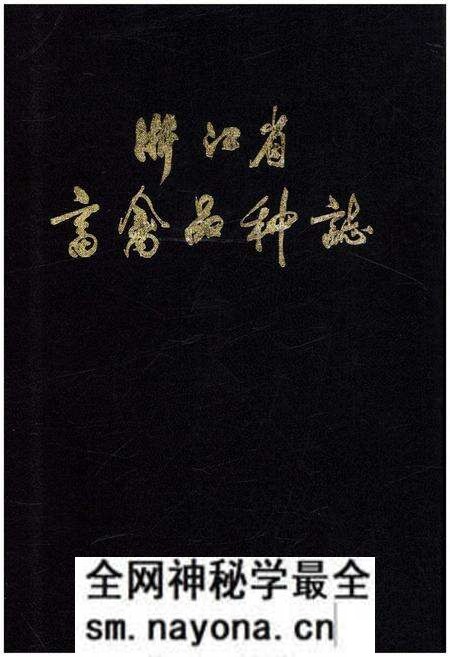 浙江省
畜禽品种誌
全网神秘学最全
sm.nayona.cn